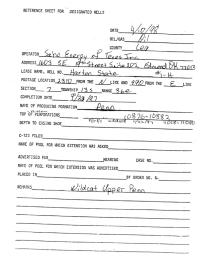 REFERENCE SHEET FOR DESIGNATED WELLS
DATE 4/10/98
OIL/GAS Oil
COUNTY Lea
OPERATOR Soho Energy of Texas Inc.
ADDRESS 1603 SE Street Suite 102 Edmond OK
LEASE NAME, WELL NO. Harton State #1-H
FOOTAGE LOCATION 2310 FROM THE N LINE AND 990 FROM THE E LINE
SECTION 7 TOWNSHIP 13S RANGE 36E
COMPLETION DATE
NAME OF PRODUCING FORMATION Penn
TOP OF PERFORATIONS 10876-10882
DEPTH TO CASING SHOE
C-123 FILED
NAME OF POOL FOR WHICH EXTENSION WAS ASKED
ADVERTISED FOR HEARING CASE NO.
NAME OF POOL FOR WHICH EXTENSION WAS ADVERTISED
PLACED IN BY ORDER NO. R-
REMARKS Wildcat Upper Penn